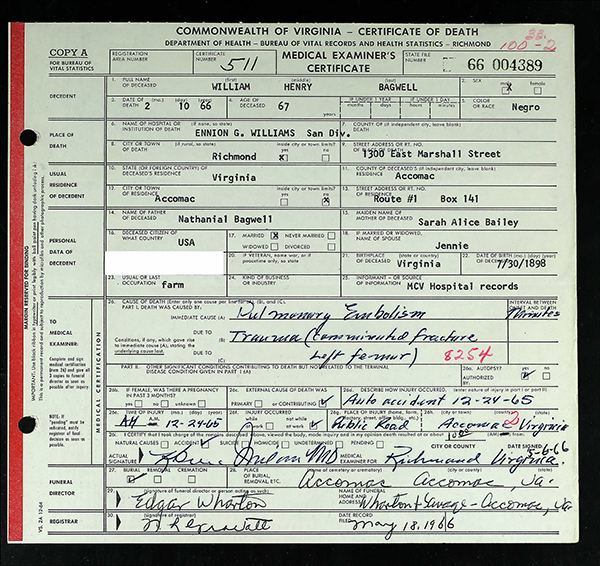 COMMONWEALTH OF VIRGINIA – CERTIFICATE OF DEATH
DEPARTMENT OF HEALTH – BUREAU OF VITAL RECORDS AND HEALTH STATISTICS – RICHMOND
100-2
COPY A
FOR BUREAU OF
VITAL STATISTICS
REGISTRATION
AREA NUMBER
CERTIFICATE
NUMBER
511
MEDICAL EXAMINER'S
CERTIFICATE
STATE FILE
NUMBER
66 004389
DECEDENT
1. FULL NAME
OF DECEASED
(first) (middle) (last)
WILLIAM HENRY BAGWELL
2. SEX
male female
X
3. DATE OF
DEATH
(mo.) (day) (year)
2 10 66
4. AGE OF
DECEASED
67
years
IF UNDER 1 YEAR
months days
IF UNDER 1 DAY
hours minutes
5. COLOR
OR RACE
Negro
PLACE OF
DEATH
6. NAME OF HOSPITAL OR
INSTITUTION OF DEATH
(if none, so state)
ENNION G. WILLIAMS San Div.
7. COUNTY OF DEATH
(if independent city, leave blank)
8. CITY OR TOWN
OF DEATH
(if rural, so state)
Richmond
inside city or town limits?
yes no
X
9. STREET ADDRESS OR RT. NO.
OF PLACE OF DEATH
1300 East Marshall Street
USUAL
RESIDENCE
OF DECEDENT
10. STATE (OR FOREIGN COUNTRY) OF
DECEASED'S RESIDENCE
Virginia
11. COUNTY OF DECEASED'S RESIDENCE
(if independent city, leave blank)
Accomac
12. CITY OR TOWN
OF RESIDENCE
Accomac
inside city or town limits?
yes no
X
13. STREET ADDRESS OR RT. NO.
OF RESIDENCE
Route #1 Box 141
PERSONAL
DATA OF
DECEDENT
14. NAME OF FATHER
OF DECEASED
Nathanial Bagwell
15. MAIDEN NAME OF
MOTHER OF DECEASED
Sarah Alice Bailey
16. DECEASED CITIZEN OF
WHAT COUNTRY
USA
17. MARRIED X NEVER MARRIED
WIDOWED DIVORCED
18. IF MARRIED OR WIDOWED
NAME OF SPOUSE
Jennie
20. IF VETERAN, name war, or if
peacetime only, so state
21. BIRTHPLACE
OF DECEASED
Virginia
22. DATE OF BIRTH
OF DECEASED
(mo.) (day) (year)
7/30/1898
23. USUAL OR LAST
OCCUPATION
farm
24. KIND OF BUSINESS
OR INDUSTRY
25. INFORMANT - OR SOURCE
OF INFORMATION
MCV Hospital records
TO
MEDICAL
EXAMINER:
Complete and sign
medical certification
(item 26) and give all
3 copies to funeral
director as soon as
possible after inquiry
MEDICAL CERTIFICATION
26. CAUSE OF DEATH (Enter only one cause per line for (A), (B), and (C).
PART I. DEATH WAS CAUSED BY:
IMMEDIATE CAUSE (A)
Pulmonary Embolism
INTERVAL BETWEEN
ONSET AND DEATH
Minutes
Conditions, if any, which gave rise
to immediate cause (A), stating the
underlying cause last.
DUE TO
(B)
Trauma (comminuted fracture
DUE TO
(C)
Left femur)
8254
PART II. OTHER SIGNIFICANT CONDITIONS CONTRIBUTING TO DEATH BUT NOT RELATED TO THE TERMINAL
DISEASE CONDITION GIVEN IN PART I (A)
26a. AUTOPSY?
yes no
AUTHORIZED
BY
26b. IF FEMALE, WAS THERE A PREGNANCY
IN PAST 3 MONTHS?
yes no unknown
26c. EXTERNAL CAUSE OF DEATH WAS
PRIMARY or CONTRIBUTING
26d. DESCRIBE HOW INJURY OCCURRED
(enter nature of injury in part I or part II)
Auto accident 12-24-65
NOTE:
If "pending"
must be
indicated,
notify registrar
of final
decision as
soon as possible
26e. TIME OF INJURY
(mo.) (day) (year)
A.M.
P.M.
12-24-65
26f. INJURY OCCURRED
26g. PLACE OF INJURY (home, farm,
Public Road
26h. (city or town) (county) (state)
Accomac 2 Virginia
26i. I CERTIFY that I took charge of the remains described above, viewed the body, made inquiry and in my opinion death resulted at
NATURAL CAUSES ACCIDENT SUICIDE HOMICIDE UNDETERMINED PENDING
ACTUAL
SIGNATURE
MEDICAL
EXAMINER FOR
CITY OR COUNTY
Richmond Virginia.
DATE SIGNED
FUNERAL
DIRECTOR
27. BURIAL REMOVAL CREMATION
28. PLACE OF
BURIAL,
REMOVAL, ETC.
(name of cemetery or crematory) (city or county) (state)
Accomac Accomac Va.
29. (signature of funeral director or person acting as such)
Edgar Wharton
NAME OF FUNERAL
HOME AND
ADDRESS
Wharton & Savage - Accomac, Va
REGISTRAR
30. (signature of registrar)
DATE RECORD
FILED
May 18, 1966
VS. 2A 12-64
MARGIN RESERVED FOR BINDING